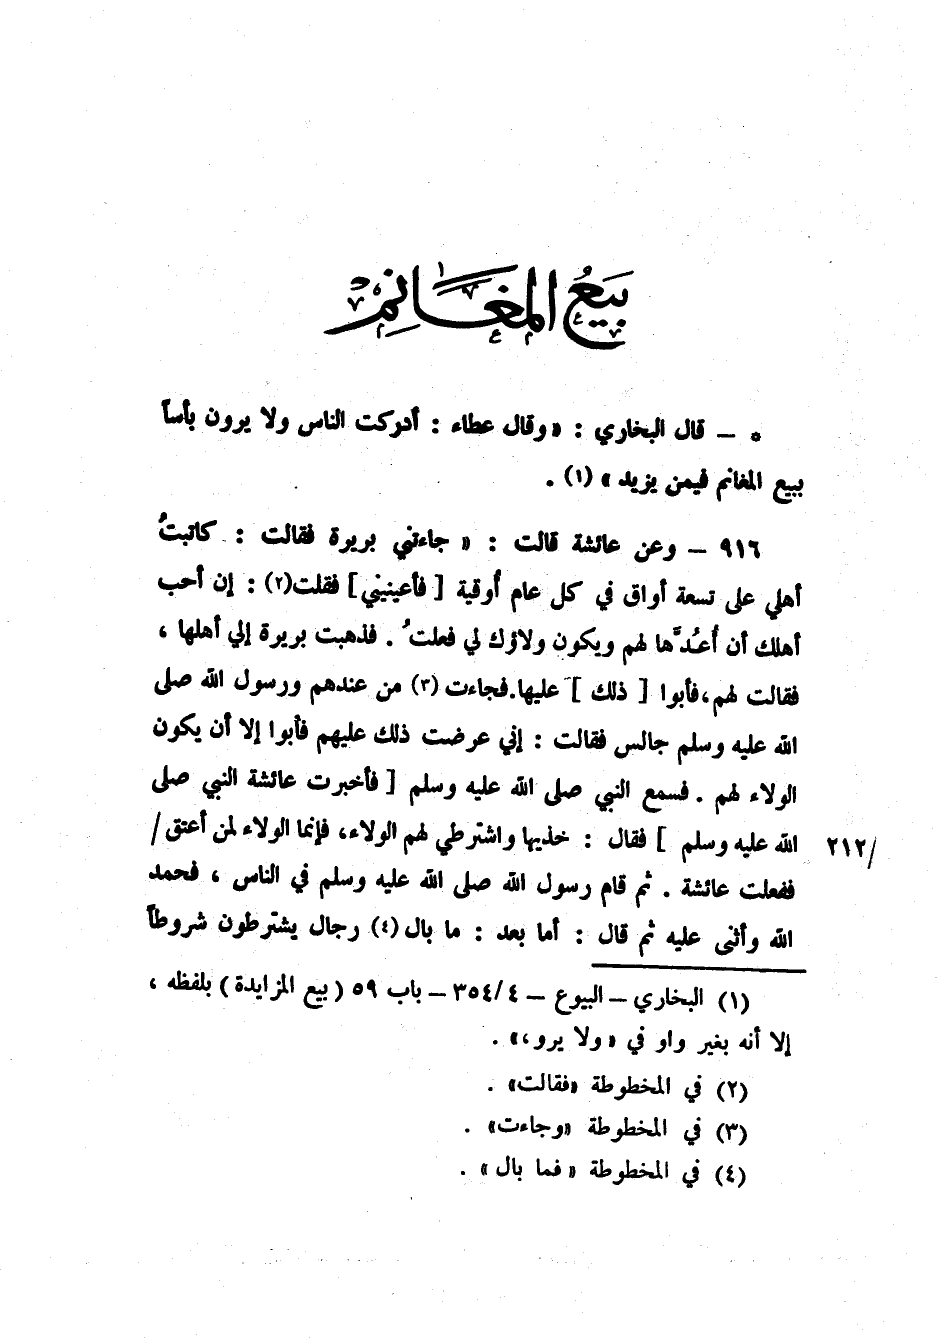 بَيعُ المَغَانِمْ
* – قال البخاري : « وقال عطاء : أدركت الناس ولا يرون بأساً
ببيع المغانم فيمن يزيد » (١) .
٩١٦ – وعن عائشة قالت : « جاءتني بريرة فقالت : كاتبتُ
أهلي على تسعة أواق في كل عام أُوقية [ فأعينيني ] فقلت(٢) : إن أحب
أهلك أن أعُدَّها لهم ويكون ولاؤك لي فعلتُ . فذهبت بريرة إلي أهلها ،
فقالت لهم،فأبوا [ ذلك ] عليها.فجاءت (٣) من عندهم ورسول الله صلى
الله عليه وسلم جالس فقالت : إني عرضت ذلك عليهم فأبوا إلا أن يكون
الولاء لهم . فسمع النبي صلى الله عليه وسلم [ فأخبرت عائشة النبي صلى
الله عليه وسلم ] فقال : خذيها واشترطي لهم الولاء، فإنما الولاء لمن أعتق/ /٢١٢
ففعلت عائشة . ثم قام رسول الله صلى الله عليه وسلم في الناس ، فحمد
الله وأثنى عليه ثم قال : أما بعد : ما بال (٤) رجال يشترطون شروطاً
(١) البخاري – البيوع – ٣٥٤/٤ – باب ٥٩ ( بيع المزايدة ) بلفظه ،
إلا أنه بغير واو في « ولا يرو،» .
(٢) في المخطوطة «فقالت» .
(٣) في المخطوطة «وجاءت» .
(٤) في المخطوطة « فما بال » .